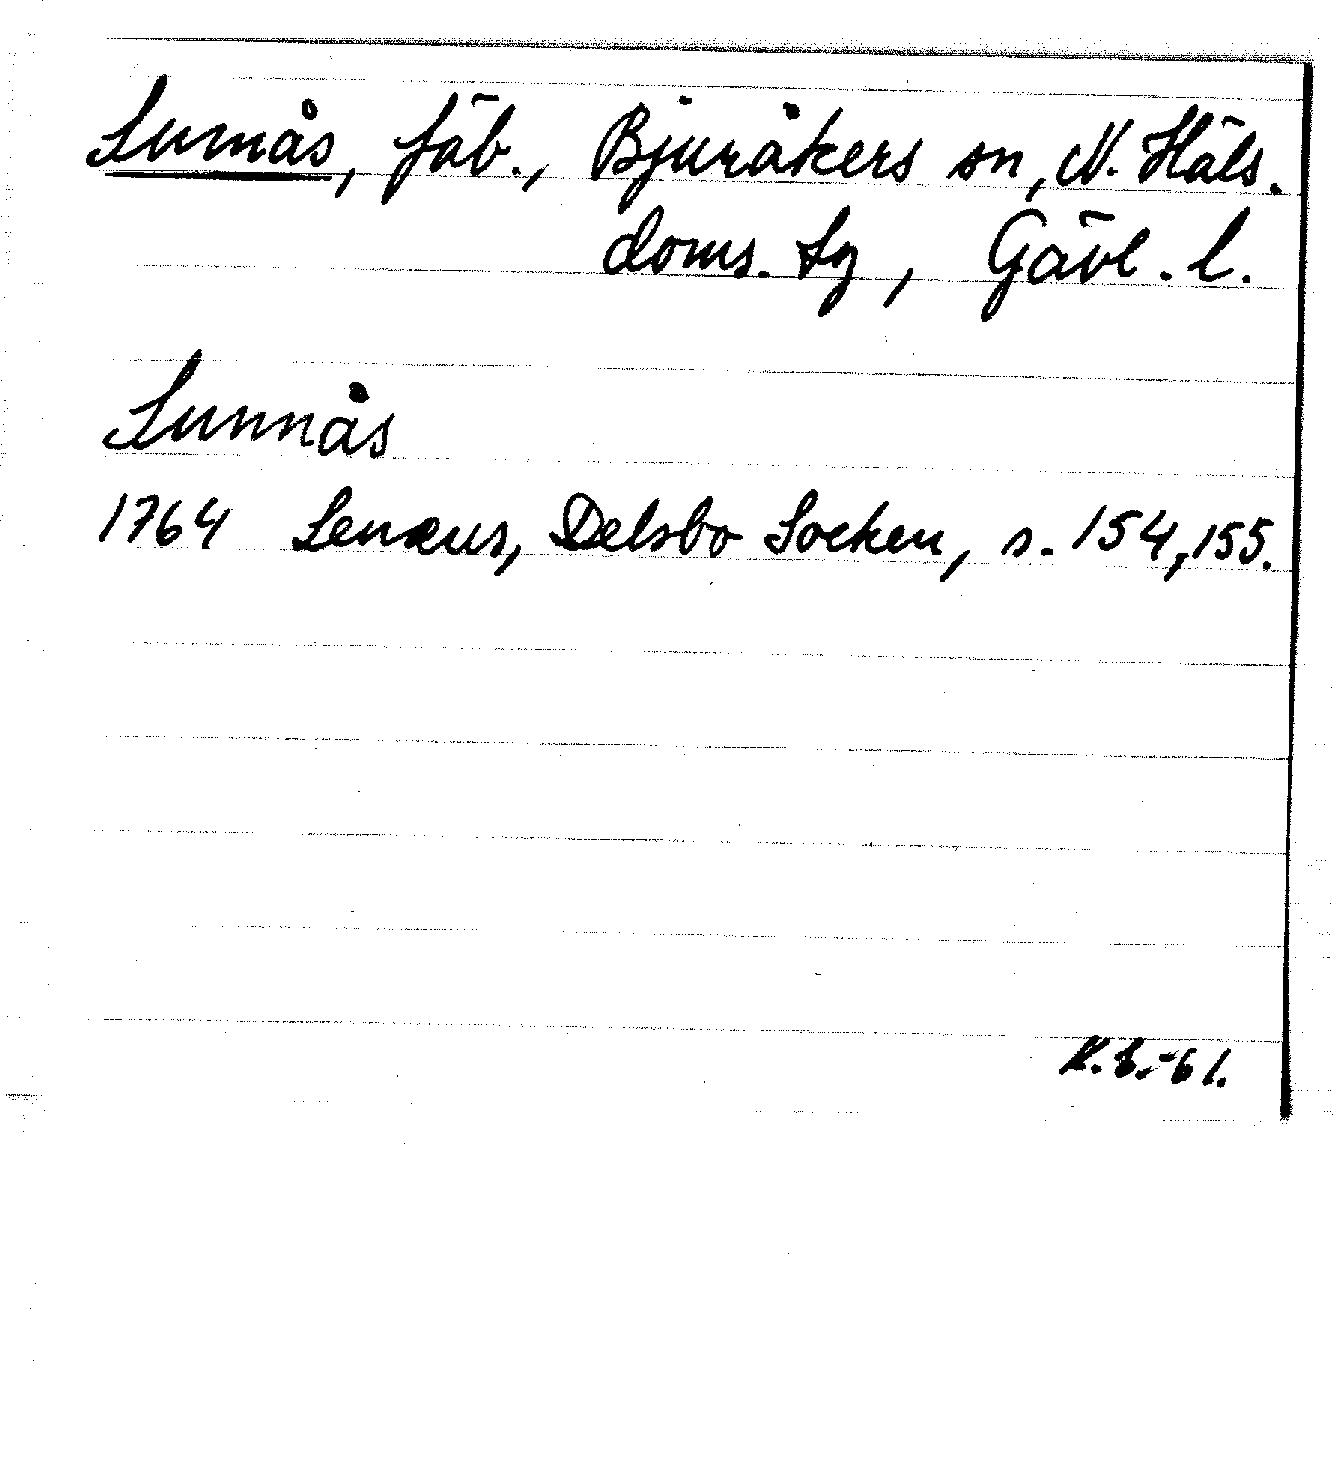 Sunnås, fäb., Bjuråkers sn, N. Häls.
doms. tg, Gävl. l.
Sunnås
1764 Lenæus, Delsbo Socken, s. 154, 155.
-61.